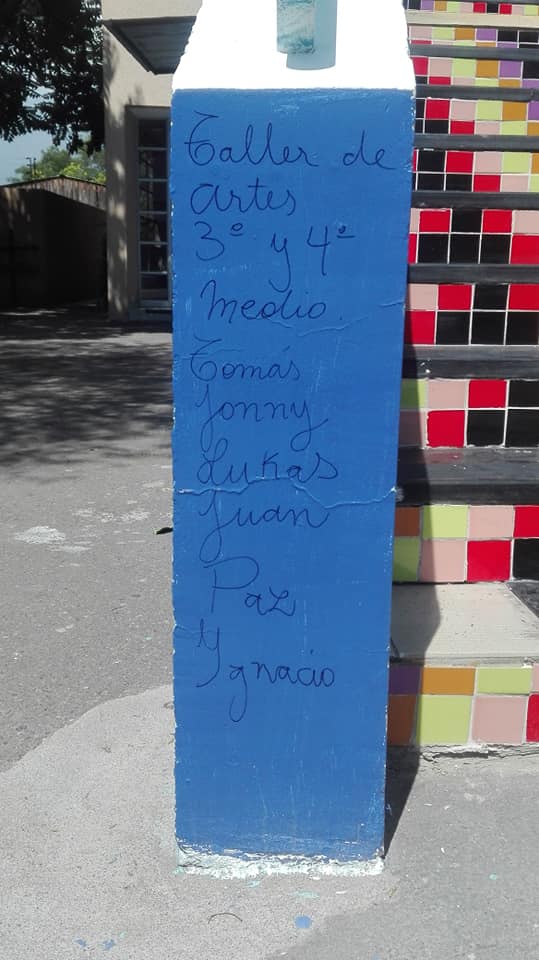 Taller de
artes
3º y 4º
Medio.
Tomás
Jonny
Lukas
Juan
Paz
Ygnacio